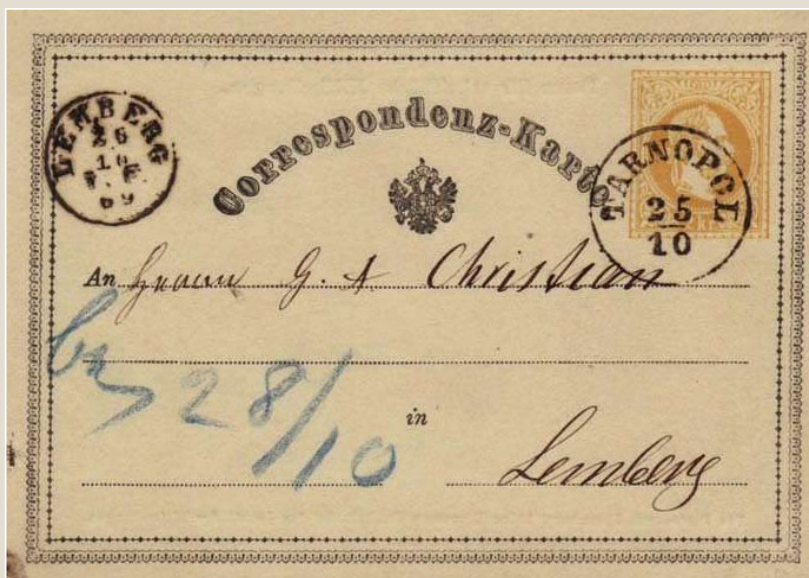 LEMBERG
26
10
69
Correspondenz-Karte
TARNOPOL
25
10
An Herrn G. A Christian
28/10
in
Lemberg